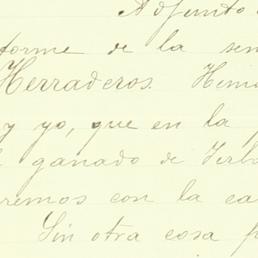 Adjunto
forme de la sem
Herraderos. Hemo
y yo, que en la p
ganado de Yerba
remos con la ca
Sin otra cosa p